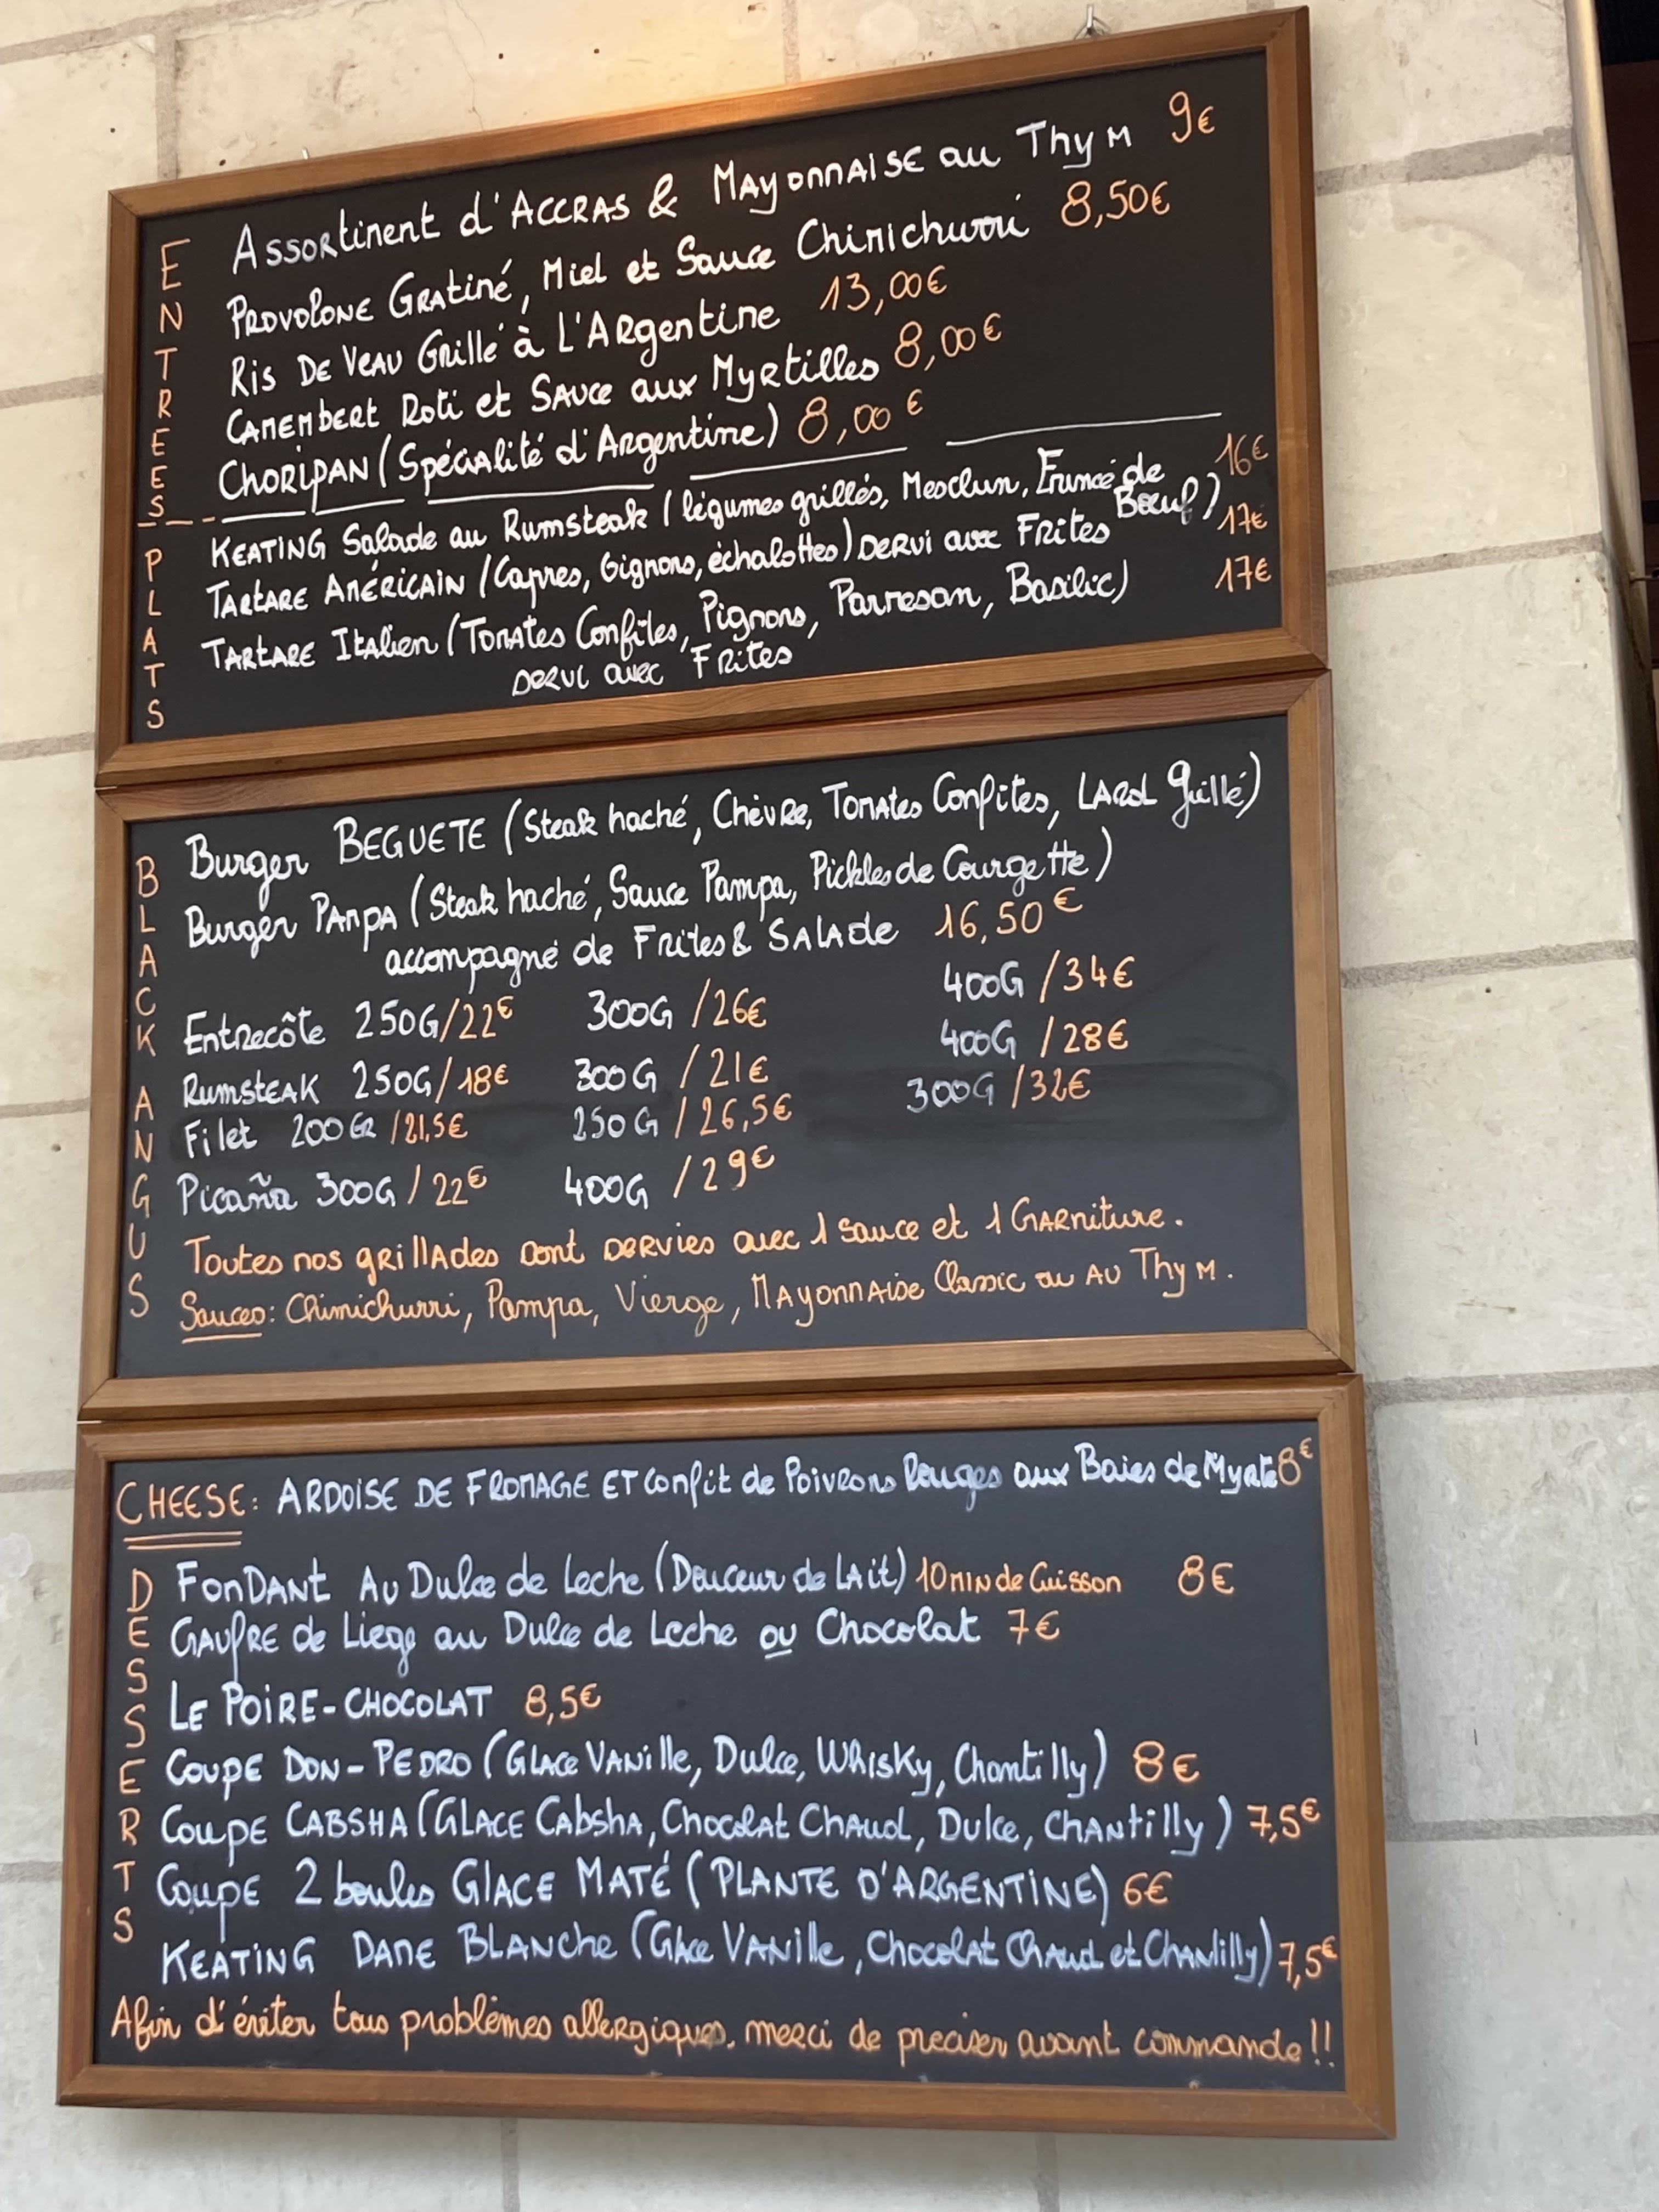 ENTREES
Assortiment d'Accras & Mayonnaise au Thym 9€
Provolone Gratiné, Miel et Sauce Chimichurri 8,50€
Ris De Veau Grillé à L'Argentine 13,00€
Camembert Roti et Sauce aux Myrtilles 8,00€
Choripan (Spécialité d'Argentine) 8,00€
PLATS
KEATING Salade au Rumsteak (légumes grillés, Mesclun, Émincé de Bœuf) 16€
Tartare Américain (Capres, Oignons, échalottes) Servi avec Frites 17€
Tartare Italien (Tomates Confites, Pignons, Parmesan, Basilic) 17€
Servi avec Frites
BLACK ANGUS
Burger BEGUETE (Steak haché, Chèvre, Tomates Confites, Lard Grillé)
Burger Pampa (Steak haché, Sauce Pampa, Pickles de Courgette)
accompagné de Frites & Salade 16,50€
Entrecôte 250G/22€ 300G/26€ 400G/34€
Rumsteak 250G/18€ 300G/21€ 400G/28€
Filet 200Gr/21,5€ 250G/26,5€ 300G/32€
Picaña 300G/22€ 400G/29€
Toutes nos grillades sont servies avec 1 Sauce et 1 Garniture.
Sauces: Chimichurri, Pampa, Vierge, Mayonnaise Classic ou au Thym.
CHEESE: ARDOISE DE FROMAGE ET Confit de Poivrons Rouges aux Baies de Myrte 8€
DESSERTS
Fondant Au Dulce de Leche (Douceur de Lait) 10 min de Cuisson 8€
Gaufre de Liege au Dulce de Leche ou Chocolat 7€
Le Poire-Chocolat 8,5€
Coupe Don-Pedro (Glace Vanille, Dulce, Whisky, Chantilly) 8€
Coupe Cabsha (Glace Cabsha, Chocolat Chaud, Dulce, Chantilly) 7,5€
Coupe 2 boules Glace Maté (PLANTE D'ARGENTINE) 6€
KEATING Dame Blanche (Glace Vanille, Chocolat Chaud et Chantilly) 7,5€
Afin d'éviter tous problèmes allergiques, merci de preciser avant commande!!